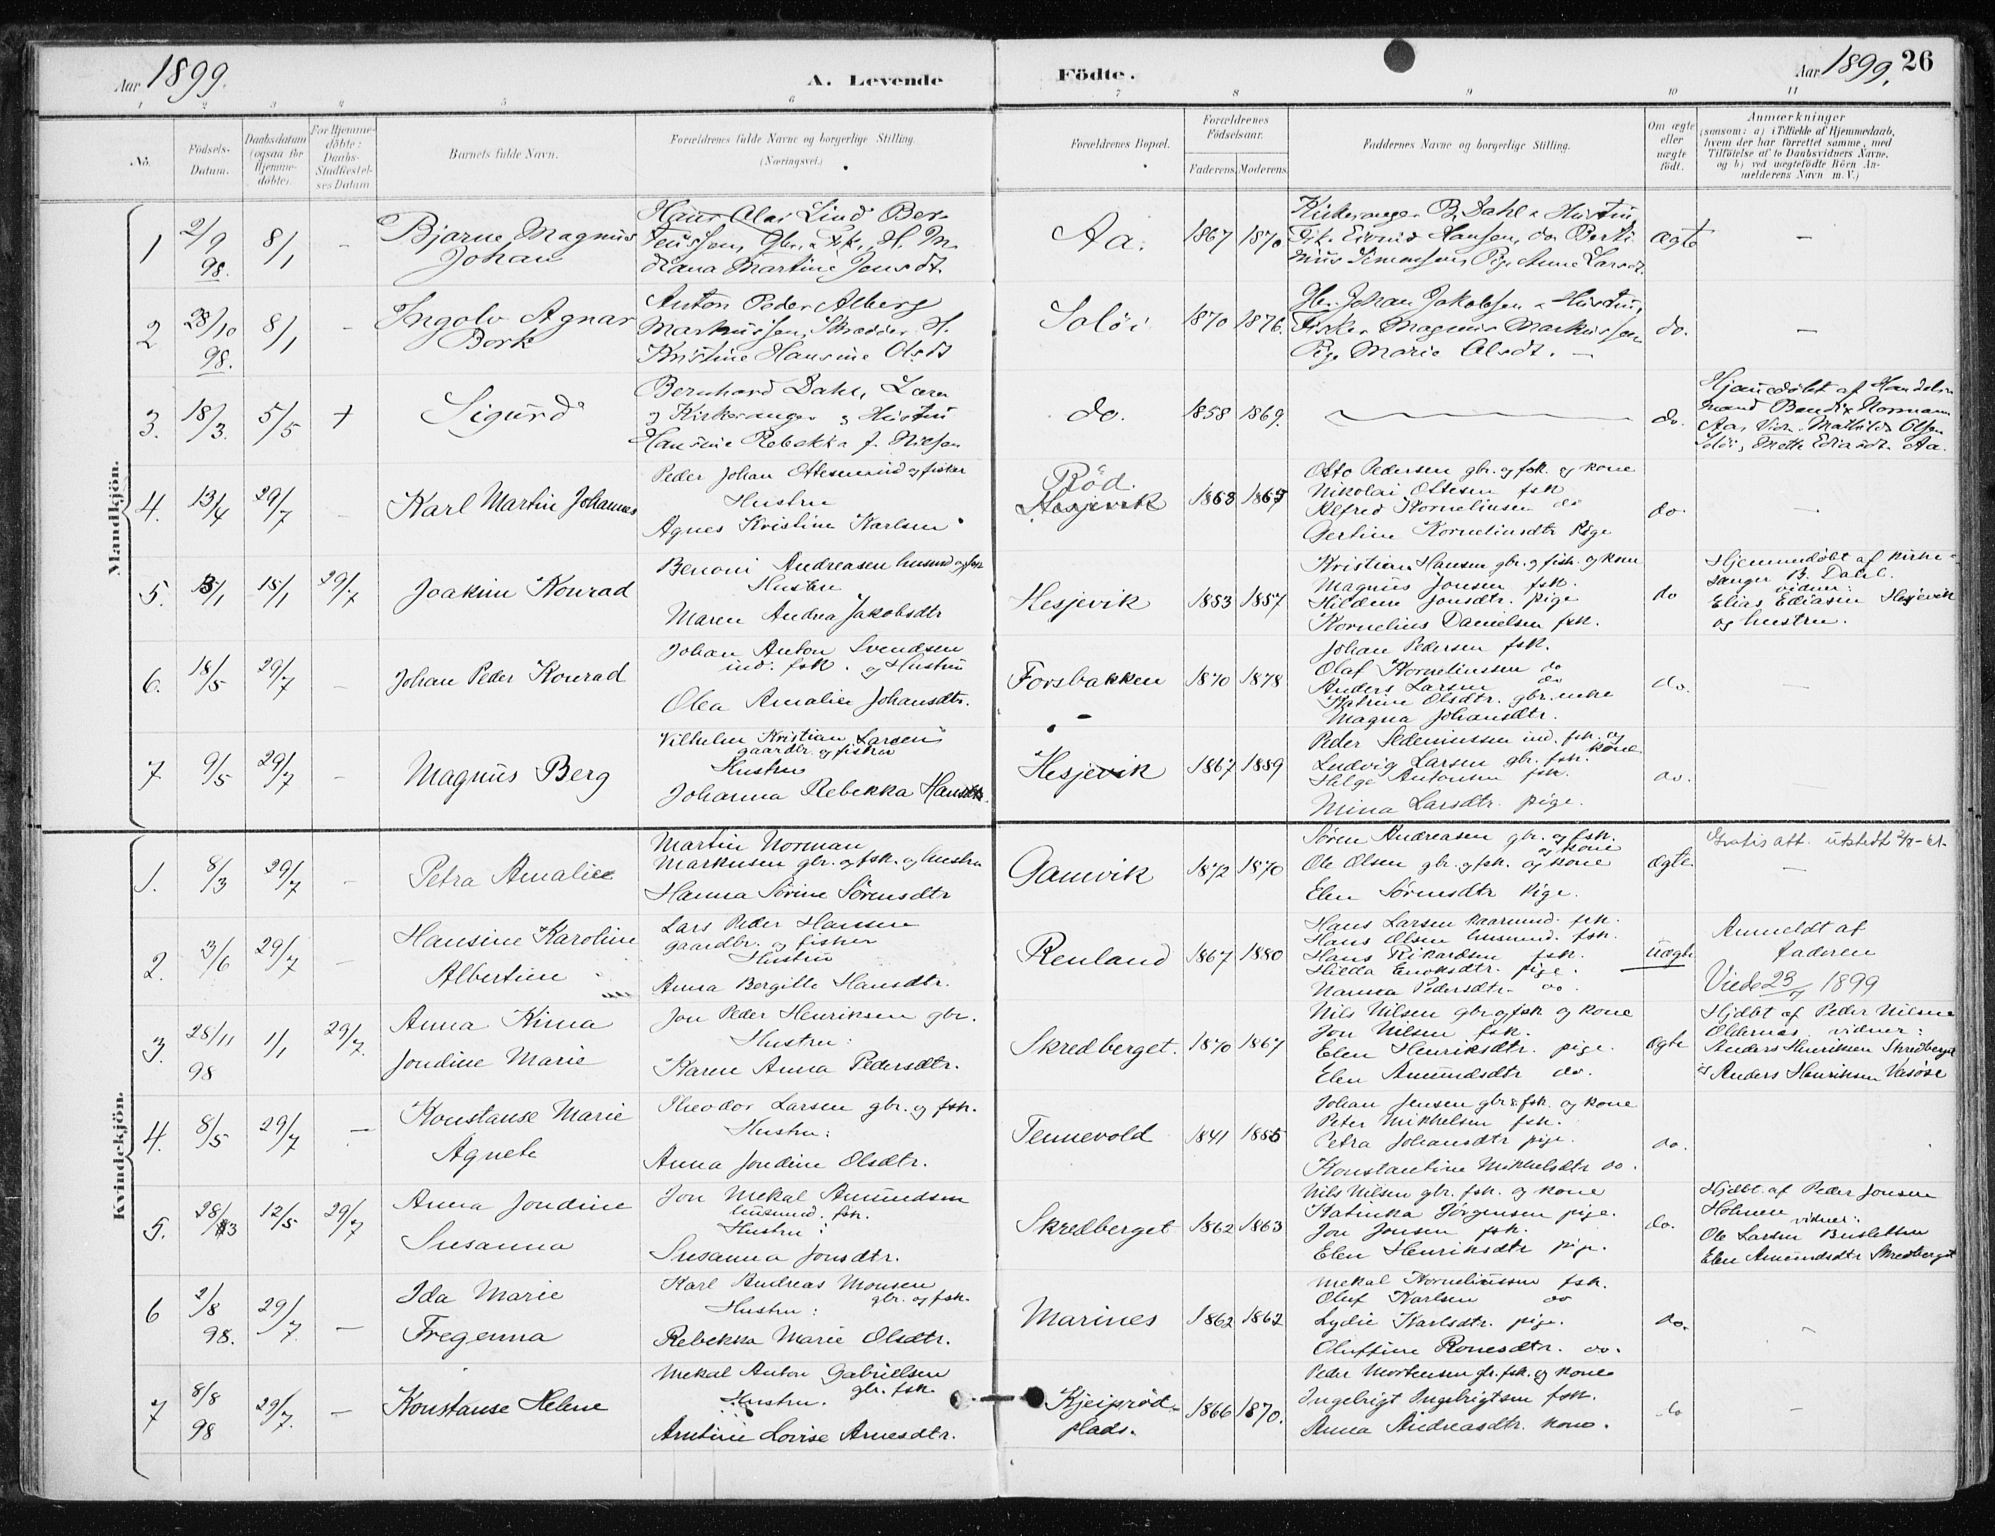 Aar 1899. A. Levende Födte. Aar 1899. 26
1 2 3 4 5 6 7 8 9 10 11
No.
Födsels-
Datum.
Daabsdatum
(ogsaa for
Hjemme-
döbte).
For Hjemme-
döbte:
Daabs-
Stadfæstel-
ses Datum
Barnets fulde Navn.
Forældrenes fulde Navne og borgerlige Stilling.
(Næringsvei.)
Forældrenes Bopæl.
Forældrenes
Födselsaar.
Faderens. Moderens.
Faddernes Navne og borgerlige Stilling.
Om ægte
eller
uægte
födt.
Anmærkninger
(saasom: a) i Tilfælde af Hjemmedaab,
hvem der har forrettet samme, med
Tilföielse af to Daabsvidners Navne,
og b) ved uægtefödte Börn An-
melderens Navn m. V.)
Mandkjön.
1 2/9 98. 8/1 –
Bjarne Magnus
Johan
Hans Olai Lind Ber-
Gbr. & Fisk. H. M.
diana Martine Jensdt.
Aa. 1867 1870
Kirkesanger B. Dahl & Hustru,
Fisk. Eivind Hansen, do Berti
nius Simonsen, Pige Anne Larsdt.
ægte –
2 28/10 98. 8/1 –
Ingolv Agnar
Bork
Anton Peder Alberg
Markussen, Skrædder H.
Kristine Hansine Olsdt
Soløi 1870 1876.
Johan Jakobsen & Hustru,
Fisker Magnus Markussen
Pige Marie Olsdt. –
do. –
3. 18/3. 5/5 +
Sigurd
Bernhard Dahl, Lærer
og Kirkesanger og Hustru
Hansine Rebekka f. Nielsen
do. 1858 1869.
do.
Hjemmedøbt af Handels
mand Bendix Normann
Aa, Vidn. Mathilde Olsen
Soløi, Mette Aa.
4. 13/4 29/7 –
Karl Martin Johannes
Peder Johan Ottesen ind og fisker
Hustru
Agnes Kristine Karlsen
Röd.
Hesjevik 1863 1867
Otto Pedersen gbr. og fsk. og kone
Nikolai Ottesen fsk
Alfred Kornelinsen do
Gertine Korneliusdtr Pige
do –
5. 3/1 15/1 29/7
Joakim Konrad
Benoni Andreasen husmd og fsk
Hustru
Maren Andrea Jakobsdtr
Hesjevik 1853 1857
Kristian Hansen gbr. og fisk. og kone
Magnus Jonsen fsk.
Hildine Jonsdtr. pige
Kornelius Danielsen fsk.
do
Hjemmedøbt af kirke-
sanger B. Dahl.
vidner:
Elias Ediasen Hesjevik
og hustru.
6. 18/5 29/7 –
Johan Peder Konrad
Johan Anton Svendsen
ind. fsk. og Hustru
Olea Amalie Johansdtr.
Forsbakken 1870 1878
Johan Pedersen fsk.
Olaf Kornelinssen do
Anders Larsen do
Katrine Olsdtr. gbr. enke
Magna Johansdtr.
do. –
7 9/5 29/7 –
Magnus Berg
Vilhelm Kristian Larsen
gaardbr. og fisker
Hustru
Johanna Rebekka Hansdtr.
Hesjevik 1867 1889
Peder ind. fsk. og kone
Ludvig Larsen gbr. fsk.
Helge Antonsen fsk.
Mina Larsdtr. pige.
do. –
Kvindekjön.
1. 8/3 29/7 –
Petra Amalie
Martin Norman
Markusen gbr. og fsk. og hustru
Hanna Sørine Sørensdtr
Gamvik 1872 1870
Søren Andreasen gbr. og fsk.
og kone
Ole Olsen gbr. og fsk. og kone
Elen Sørensdtr Pige.
ægte
Gratis att. utstedt
–
2. 3/6 29/7 –
Hansine Karoline
Albertine
Lars Peder Hansen
gaardbr. og fisker
Hustru
Anna Bergitte Hansdtr.
Renland 1867 1880
Hans Larsen kaarmd. fsk.
Hans Olsen husmd. fsk.
Hans Rikardsen fsk.
Hilda Enoksdtr. pige.
Nanna Pedersdtr. do.
uægte
Anmeldt af
faderen
Viede 23/7 1899
3. 28/11 98 1/1 29/7.
Anna Kima
Jondine Marie
Jon Peder Henriksen gbr.
Hustru:
Karen Anna Pedersdtr.
Skredberget. 1870 1867
Nils Nilsen gbr og fsk og kone
Jon Nilsen fsk.
Elen Henriksdtr. pige.
Elen Amundsdtr do.
ægte
Hjdbt af Peder Nilsen
Oldernes. vidner:
Anders Henriksen Skredberget
og Anders Henriksen Vasøse
4. 8/5 29/7 –
Konstanse Marie
Agnete
Theodor Larsen gbr. og fsk.
Hustru:
Anna Jondine Olsdtr.
Tennevold 1841 1855
Johan Jensen gbr & fsk. og kone
Peter Mikkelsen fsk.
Petra Johansdtr pige.
Konstantine Mikkelsdtr do.
do.
5. 28/3 12/5 29/7
Anna Jondine
Susanna
Jon Mekal Amundsen
husmd. fsk.
Hustru:
Susanna Jonsdtr.
Skredberget 1862 1863
Nils Nilsen gbr. fsk. og kone
Katinka Jørgensen pige.
Jon Jonsen fsk.
Elen Henriksdtr pige.
do.
Hjdbt. af Peder Jonsen
Holmen vidner:
Ole Larsen
Elen Amundsdtr Skredberget
6 2/8 98. 29/7. –
Ida Marie
Fregenna
Karl Andreas Monsen
gbr. og fsk.
Hustru:
Rebekka Marie Olsdtr.
Marines 1862 1862
Mekal Kornelinssen fsk.
Oluf Karlsen do
Lydie Karlsdtr. pige.
Oluffine Ronesdtr. do.
do. –
7 8/8 98 29/7. –
Konstanse Helene
Mekal Anton Gabrielsen
gbr. fsk.
Hustru.
Arntine Lovise Arnesdtr.
Kjeiprød-
plads. 1866 1870.
Peder Mortensen gbr. fsk. og kone
Ingebrigt Ingebrigtsen fsk.
Anna Andreasdtr. kone.
do –